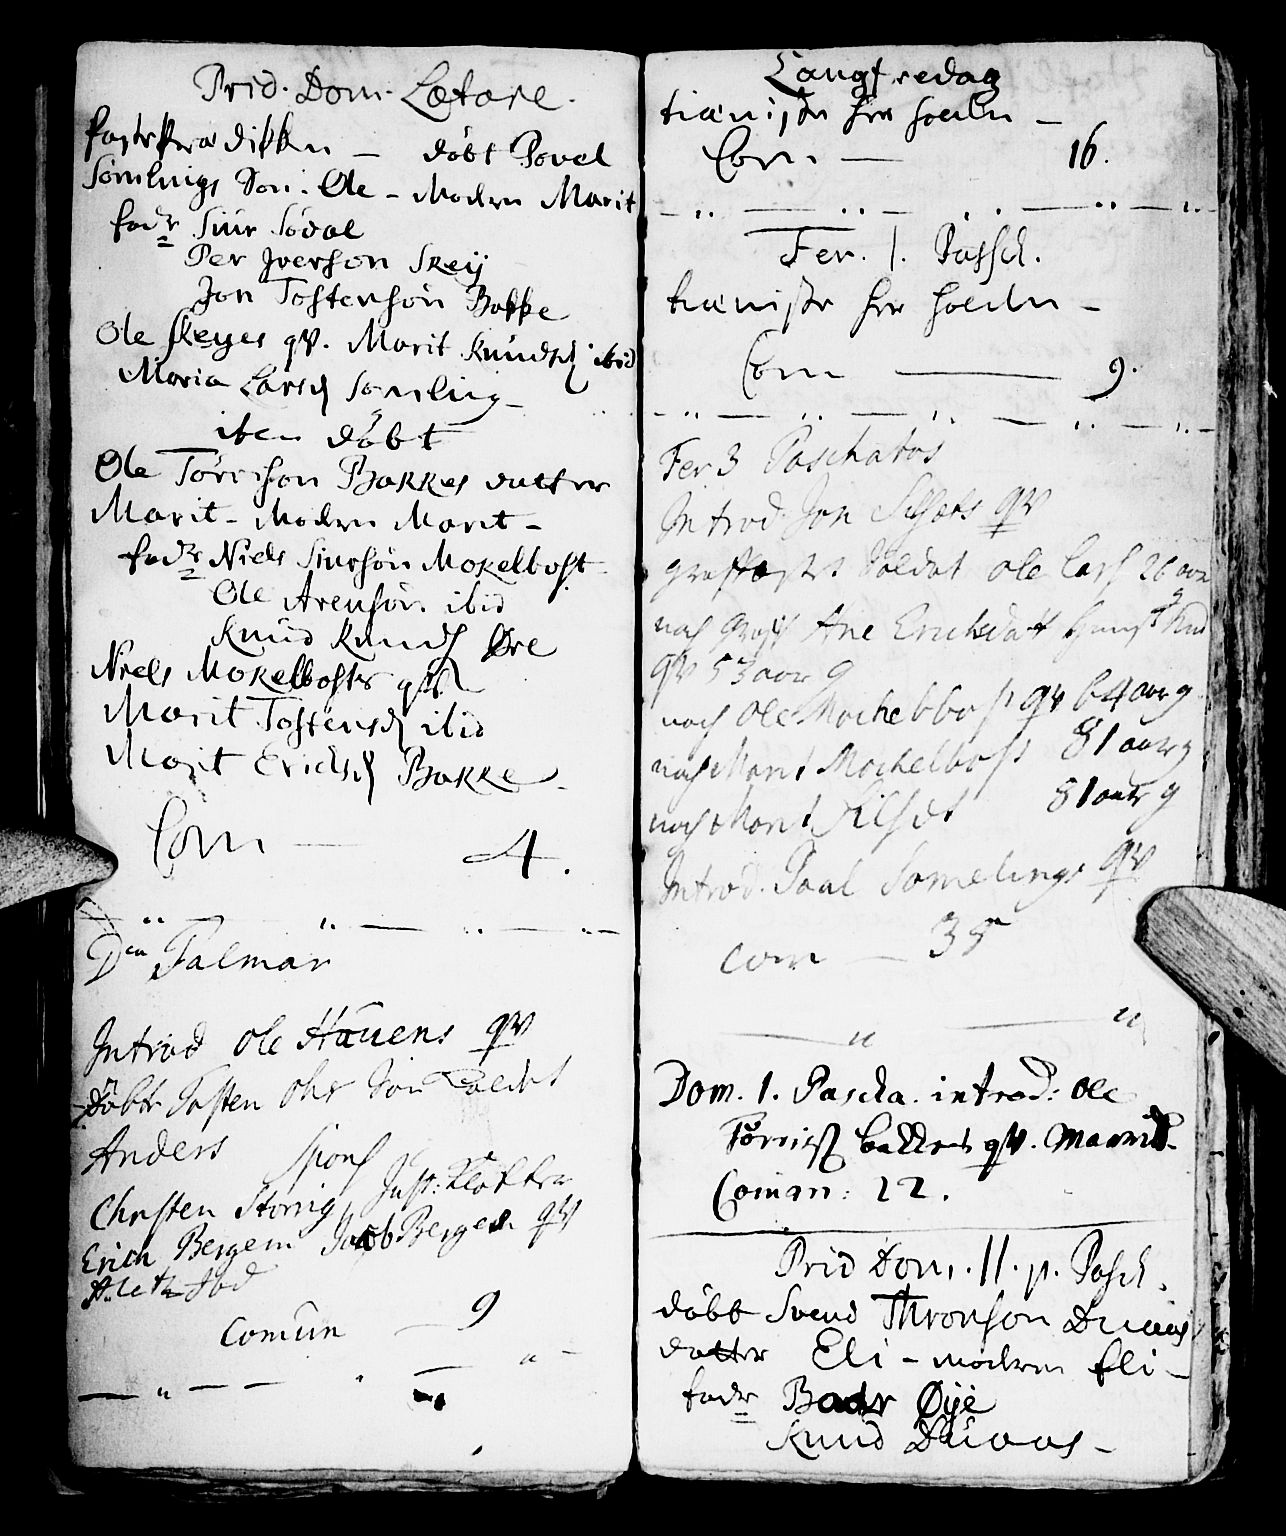 Prid. Dom. Lætare.
fasteprædikken — døbt Povel
Sømlings Son: Ole - Modern Marit
fadr Siur Södal
Per Iverson Skeij
Jon Tostenson Bakke
Ole Skeyes qv. Marit Knudsd ibid
Maria Larsd Sømling -
iten døbt
Ole Törrison Bakkes datter
Marit - Modern Marit -
fadr Niels Siurson Mokelbost
Ole Arenson ibid
Knud Knuds Øre
Niels Mokelbosts qv
Marit Tostensd ibid
Marit Ericksd Bakke -
Com — 4.
Dca Palmar
Introd Ole Hauens qv
döbt Tosten Ols Sön
Anders Spons
Christen Storrig, Just: Klokker
Erich Bergem Jacob Bergem qv
Comun — 9
Langfredag
tieniste her holden —
Com — 16.
Fer. 1. Passch.
tieniste her holden —
Com — 9.
Fer 3 Paschatos
Introd Jon qv
Soldat Ole Lars 26 aar
noch Ane Ericksdatt
qv 53 aar 9
noch Ole Mochelbost qv 64 aar 9
noch Marit Mochelbost 81 aar 9
noch Marit 81 aar 9
Introd. Paal Sømelings qv
Com — 35
Dom. 1. Pascha. introd: Ole
Törris bakkes qv. Maarrit.
Coman: 22.
Prid Dom. II. p. Pasch.
døbt Svend Thronson Duaas
datter Eli - modern Eli -
fadr Øije
Knud Duaas -